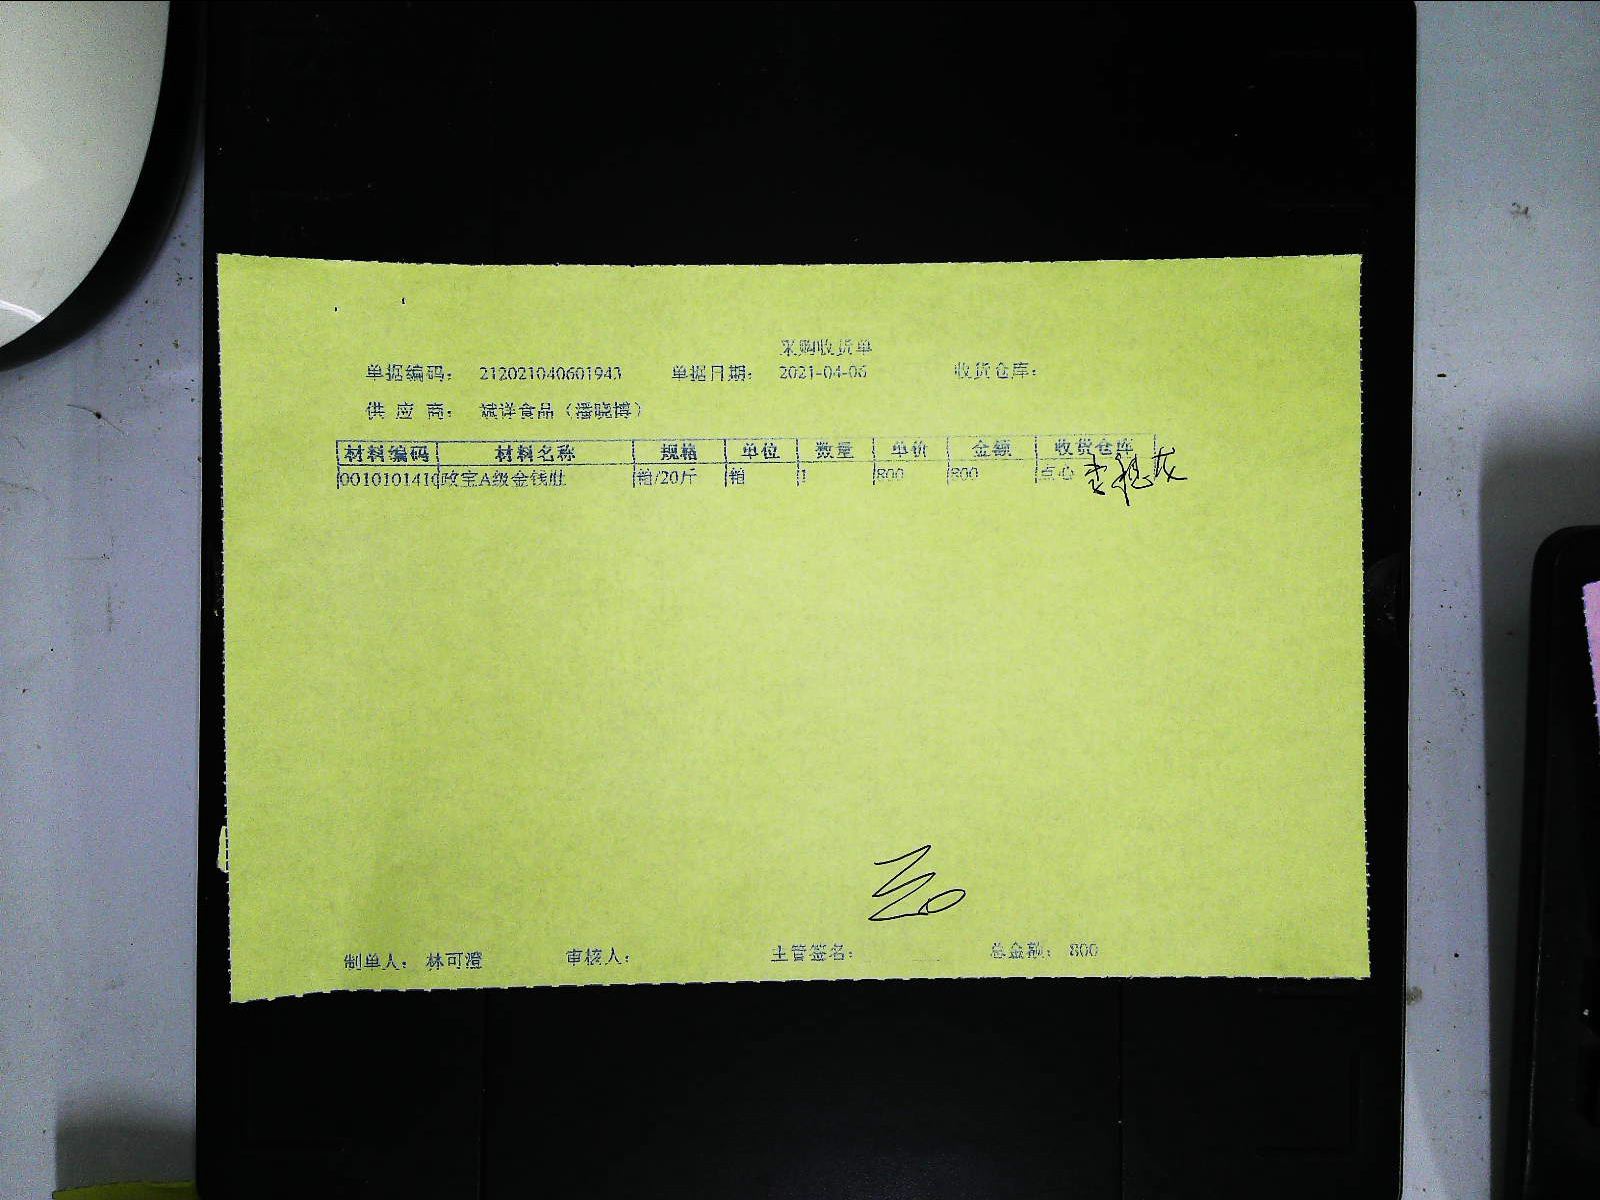 采购收货单
单据编码： 212021040601943 单据日期： 2021-04-06 收货仓库：
供 应 商： 斌洋食品（潘晓博）
材料编码 材料名称 规格 单位 数量 单价 金额 收货仓库
0010101410 改宝A级金钱肚 箱/20斤 箱 1 800 800 点心
制单人： 林可澄 审核人： 主管签名： 总金额： 800